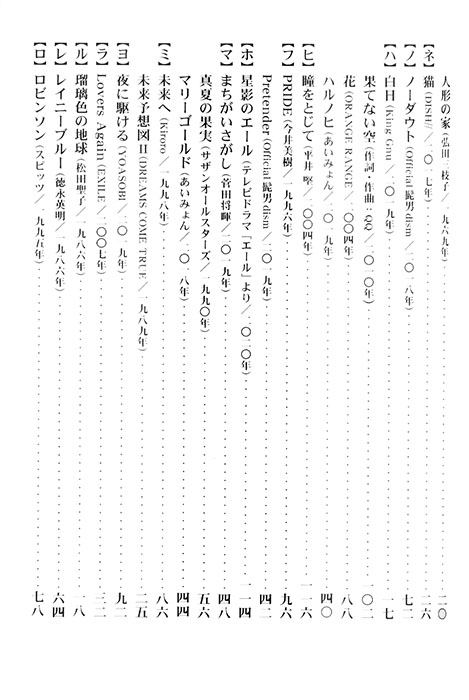 人形の家(弘田三枝子/一九六九年)……二〇
【ネ】猫(DISH///二〇一七年)……二六
【ノ】ノーダウト(Official髭男dism/二〇一八年)……七二
【ハ】白日(King Gnu/二〇一九年)……一七
果てない空(作詞・作曲:QQ/二〇一〇年)……一〇二
花(ORANGE RANGE/二〇〇四年)……八八
ハルノヒ(あいみょん/二〇一九年)……四〇
【ヒ】瞳をとじて(平井 堅/二〇〇四年)……一一六
【フ】PRIDE(今井美樹/一九九六年)……九六
Pretender(Official髭男dism/二〇一九年)……四二
【ホ】星影のエール(テレビドラマ「エール」より/二〇二〇年)……一一四
【マ】まちがいさがし(菅田将暉/二〇一九年)……四八
真夏の果実(サザンオールスターズ/一九九〇年)……五六
マリーゴールド(あいみょん/二〇一八年)……四四
【ミ】未来へ(Kiroro/一九九八年)……八六
未来予想図Ⅱ(DREAMS COME TRUE/一九八九年)……二五
【ヨ】夜に駆ける(YOASOBI/二〇一九年)……九二
【ラ】Lovers Again(EXILE/二〇〇七年)……三二
【ル】瑠璃色の地球(松田聖子/一九八六年)……一八
【レ】レイニーブルー(徳永英明/一九八六年)……六四
【ロ】ロビンソン(スピッツ/一九九五年)……七八